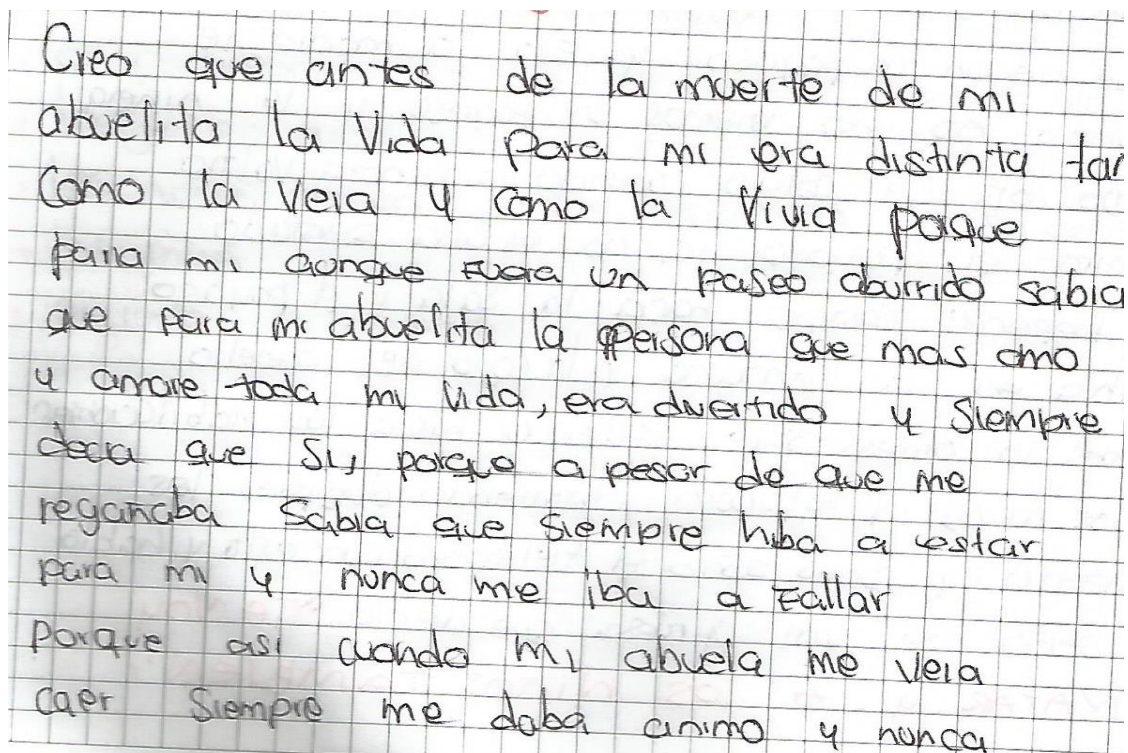 Creo que antes de la muerte de mi
abuelita la Vida para mi era distinta tan
Como la Veia y como la Vivia porque
para mi aunque Fuera un paseo aburrido sabia
que para mi abuelita la persona que mas amo
y amare toda mi vida, era divertido y Siempre
decia que Si, porque a pesar de que me
reganaba Sabia que siempre hiba a estar
para mi y nunca me iba a Fallar
porque asi cuando mi abuela me veia
caer Siempre me daba animo y nunca